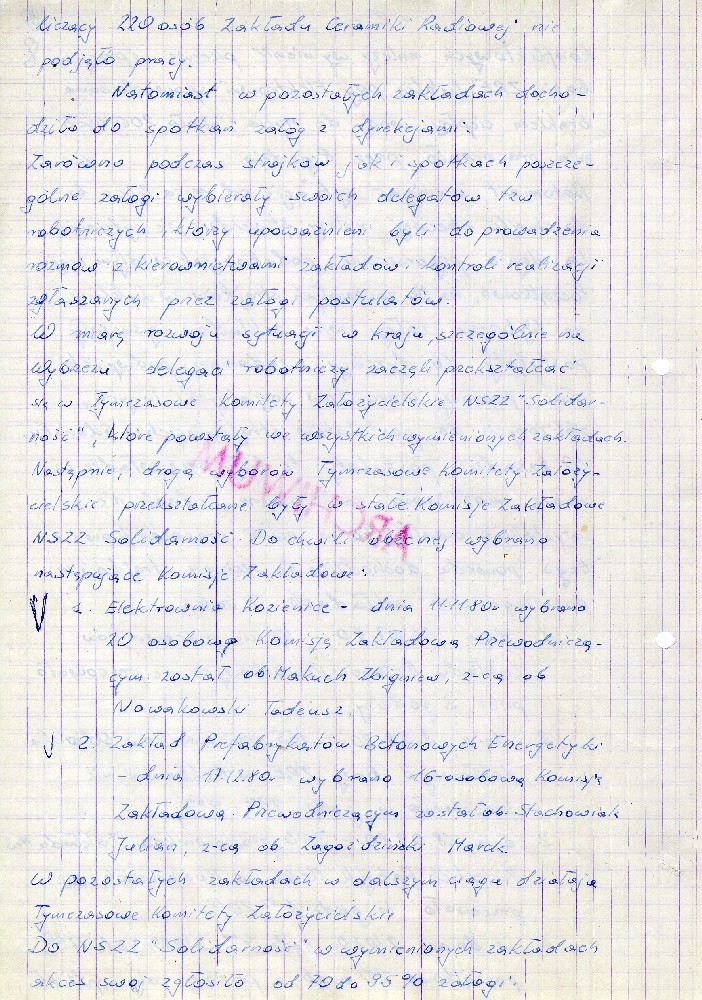 liczący 220 osób Zakładu Ceramiki Radiowej nie
podjęło pracy.
Natomiast w pozostałych zakładach docho-
dziło do spotkań załóg z dyrekcjami.
Zarówno podczas strajków jak i spotkach poszcze-
gólne załogi wybierały swoich delegatów tzw
robotniczych, którzy upoważnieni byli do prowadzenia
rozmów z kierownictwami zakładów i kontroli realizacji
zgłaszanych przez załogi postulatów.
W miarę rozwoju sytuacji w kraju, szczególnie na
wybrzeżu delegaci robotniczy zaczęli przekształcać
się w Tymczasowe Komitety Założycielskie NSZZ "Solidar-
ność", które powstały we wszystkich wymienionych zakładach.
Następnie, drogą wyborów Tymczasowe Komitety Założy-
cielskie przekształcane były w stałe Komisje Zakładowe
NSZZ Solidarność. Do chwili obecnej wybrano
następujące Komisje Zakładowe:
1. Elektrownia Kozienice - dnia 11.11.80r. wybrano
20 osobową Komisję Zakładową. Przewodniczą-
cym został ob. Makuch Zbigniew, z-cą ob
Nowakowski Tadeusz.
2. Zakład Prefabrykatów Betonowych Energetyki
- dnia 17.12.80r. wybrano 16-osobową Komisję
Zakładową. Przewodniczącym został ob. Stachowiak
Julian, z-cą ob. Zagoździński Marek.
W pozostałych zakładach w dalszym ciągu działają
Tymczasowe Komitety Założycielskie
Do NSZZ "Solidarność" w wymienionych zakładach
akces swój zgłosiło od 70 do 95% załogi.
ARCHIWUM